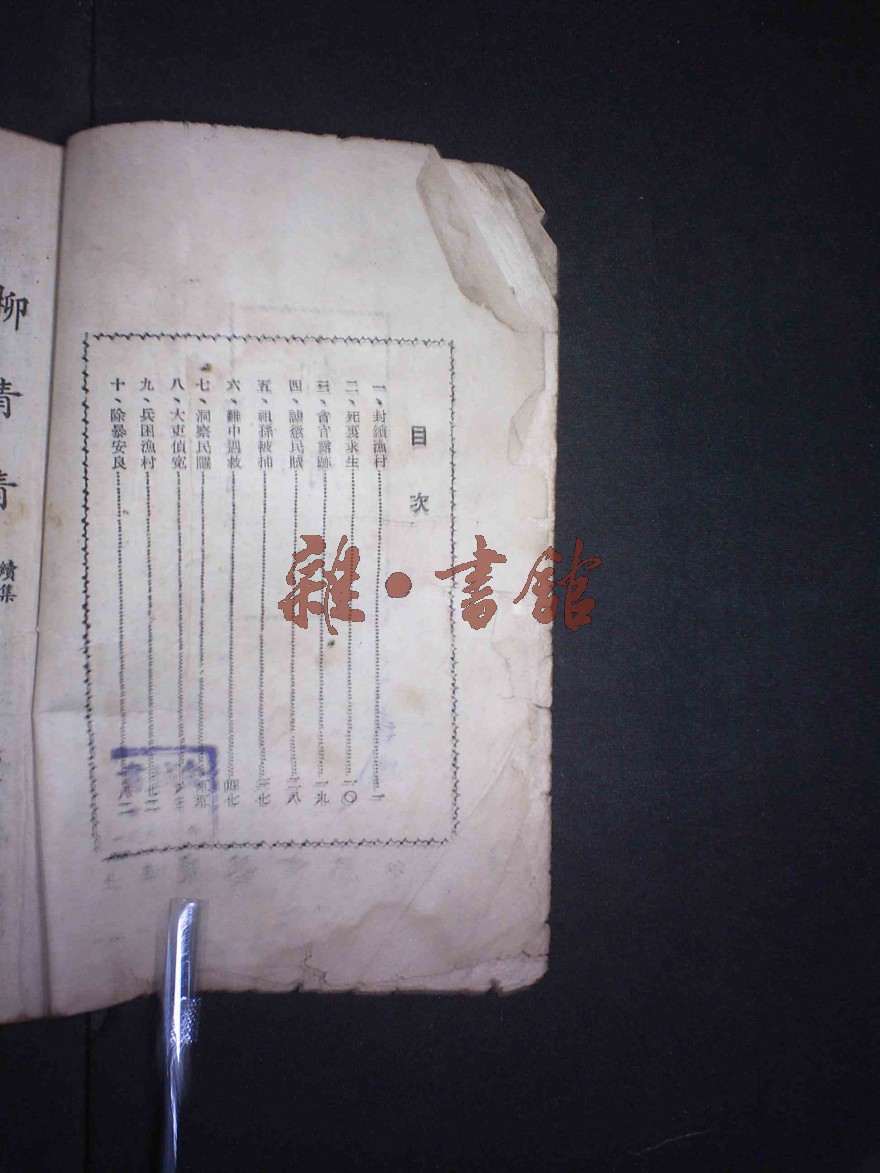 目次
一、封鎖漁村 一
二、死裏求生 一〇
三、會 一九
四、民賊 二八
五、被捕 三七
六、難中遇救 四七
七、洞察民隱
八、大吏偵寃
九、兵困漁村 七二
十、除暴安良 八二
柳青青
續集
雜·書館